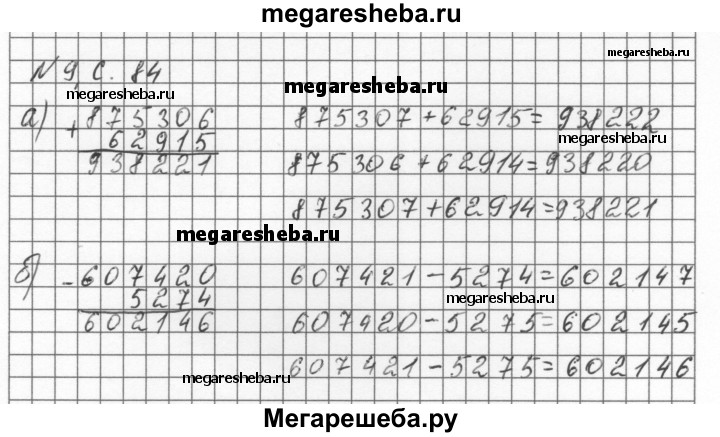 megaresheba.ru
megaresheba.ru
№ 9, с. 84
megaresheba.ru
megaresheba.ru
а) + 875306
62915
938221
875307 + 62915 = 938222
875306 + 62914 = 938220
875307 + 62914 = 938221
megaresheba.ru
б) - 607420
5274
602146
607421 - 5274 = 602147
megaresheba.ru
607420 - 5275 = 602145
607421 - 5275 = 602146
megaresheba.ru
Мегарешеба.ру